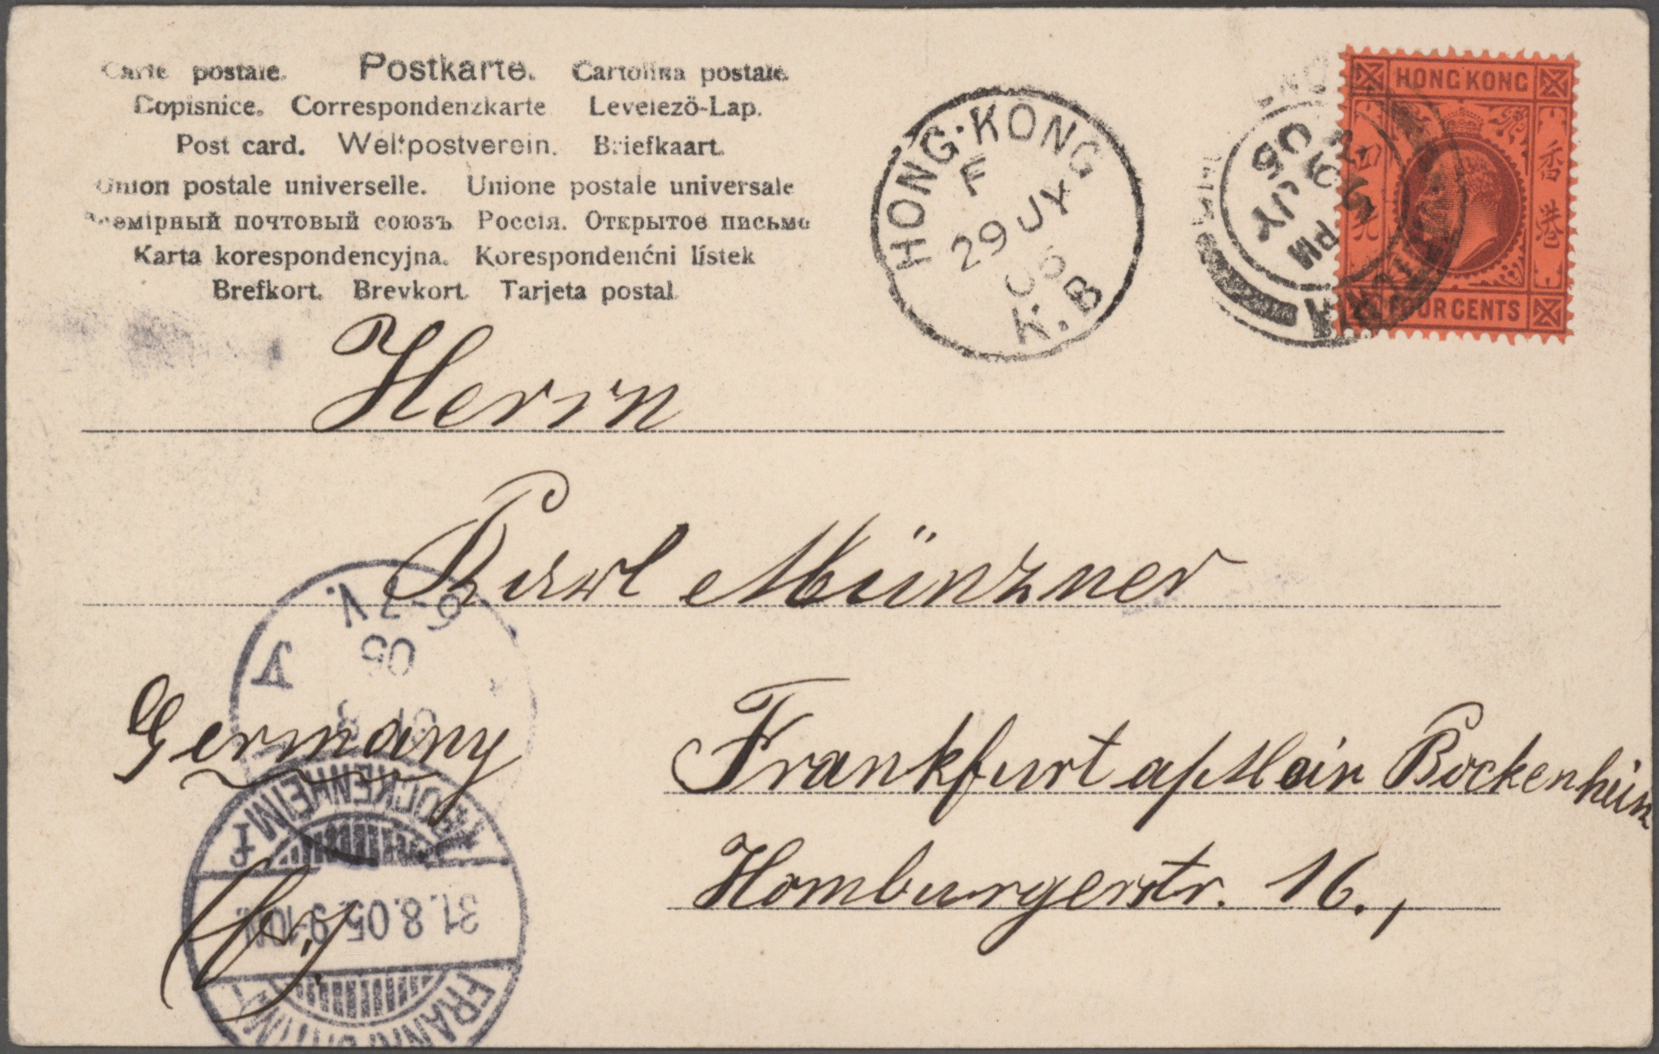 Carte postale. Postkarte. Cartolina postale.
Dopisnice. Correspondenzkarte Levelező-Lap.
Post card. Weltpostverein. Briefkaart.
Union postale universelle. Unione postale universale
Всемірный почтовый союзъ Россія. Открытое письмо
Karta korespondencyjna. Korespondenćni lístek
Brefkort. Brevkort Tarjeta postal
HONG·KONG
F
29 JY
05
K.B
VICTORIA
PM
JY
05
HONG KONG
香港
FOUR CENTS
Herrn
Karl Münzner
Germany
Frankfurt a/Main Bockenheim
Homburgerstr. 16.,
6-7V.
05
BOCKENHEIM 1
31.8.05.9-10N.
FRANKFURT